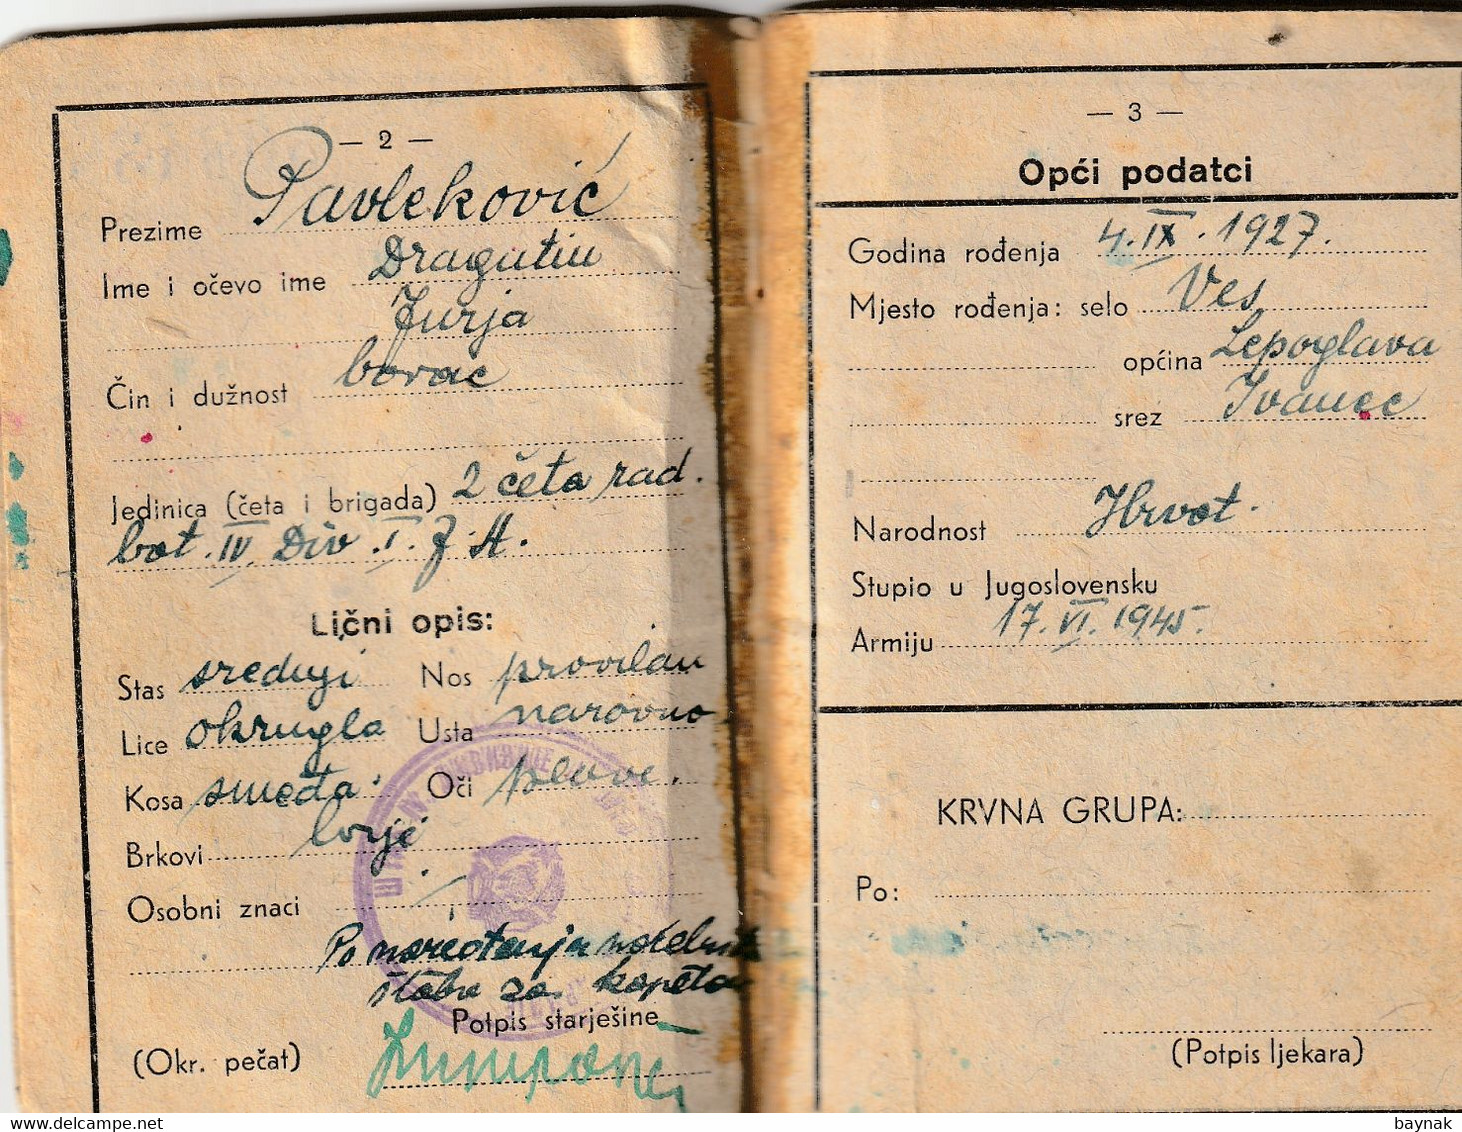 — 2 —
Prezime Pavleković
Ime i očevo ime Dragutin
Jurja
Čin i dužnost borac
Jedinica (četa i brigada) 2 četa rad.
bat. IV Div. I. J. A.
Lični opis:
Stas srednji Nos pravilan
Lice okrugla Usta naravno
Kosa smeđa. Oči plave.
Brkovi brije
Osobni znaci
Po naređenju načelnika
štaba za kapetan
Potpis starješine
(Okr. pečat)
— 3 —
Opći podatci
Godina rođenja 4. IX. 1927.
Mjesto rođenja: selo Ves
općina Lepoglava
srez Ivanec
Narodnost Hrvat.
Stupio u Jugoslovensku
Armiju 17. VI. 1945.
KRVNA GRUPA:
Po:
(Potpis ljekara)
baynak